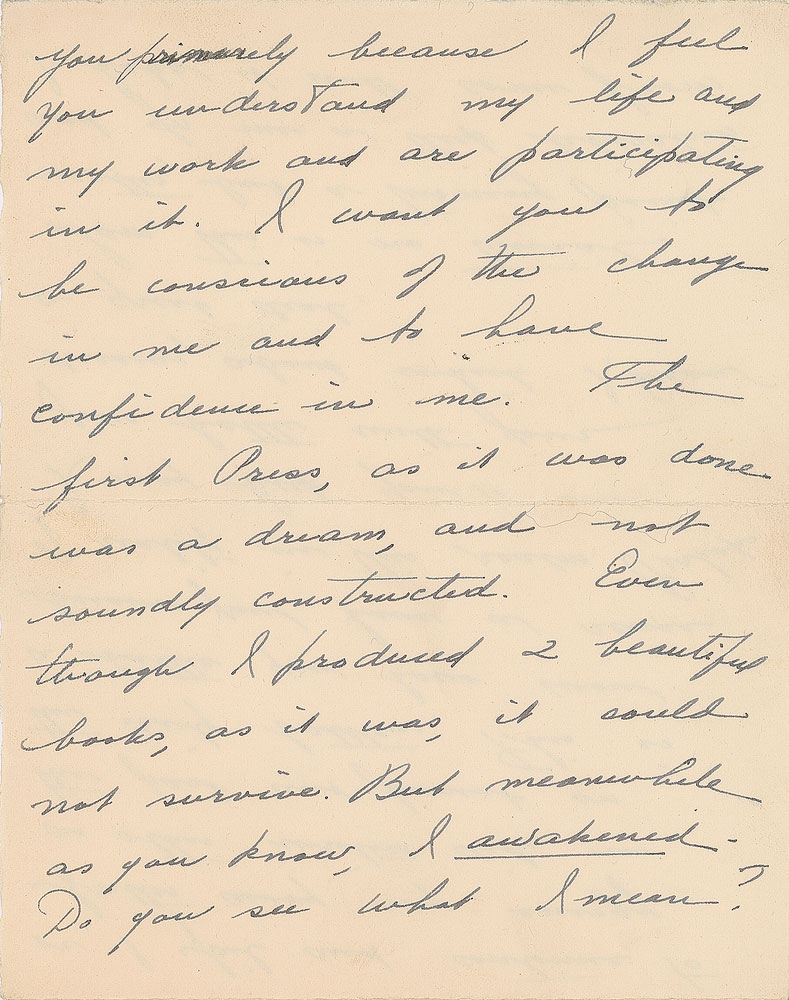 you primarely because I feel
you understand my life and
my work and are participating
in it. I want you to
be conscious of the change
in me and to have
confidence in me. The
first Press, as it was done
was a dream, and not
soundly constructed. Even
though I produced 2 beautiful
books, as it was, it could
not survive. But meanwhile
as you know, I awakened -
Do you see what I mean?